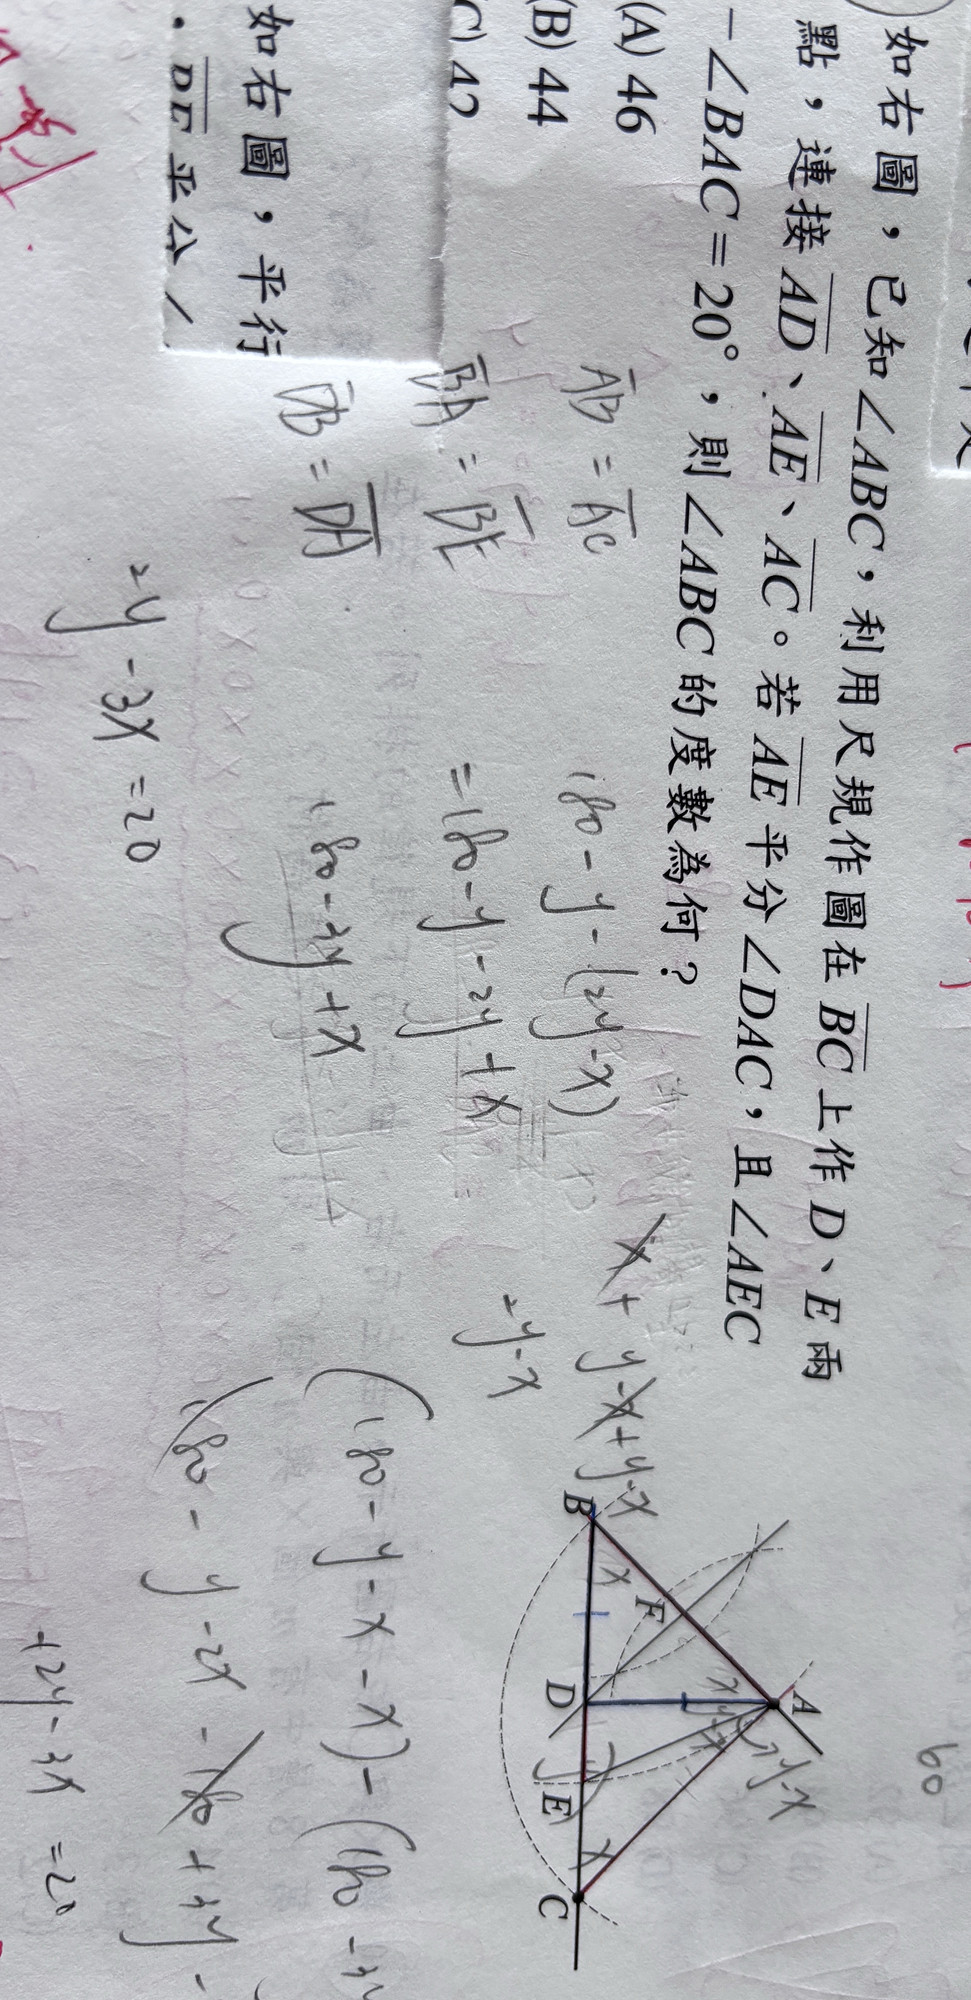 如右圖，已知∠ABC，利用尺規作圖在BC上作D、E兩
點，連接AD、AE、AC。若AE平分∠DAC，且∠AEC
－∠BAC＝20°，則∠ABC的度數為何？
(A) 46
(B) 44
(C) 42
如右圖，平行
DE平分∠
AB = AC
BA = BE
DB = DA
180 - y - (2y - x)
= 180 - y - 2y + x
180 - 3y + x
2y - 3x = 20
x + y - x + y - x
2y - x
(180 - y - x - x) - (180 - 3y
180 - y - 2x - 180 + 3y -
+2y - 3x = 20
A
B
C
D
E
F
x
x
x
y
y-x
y-x
60